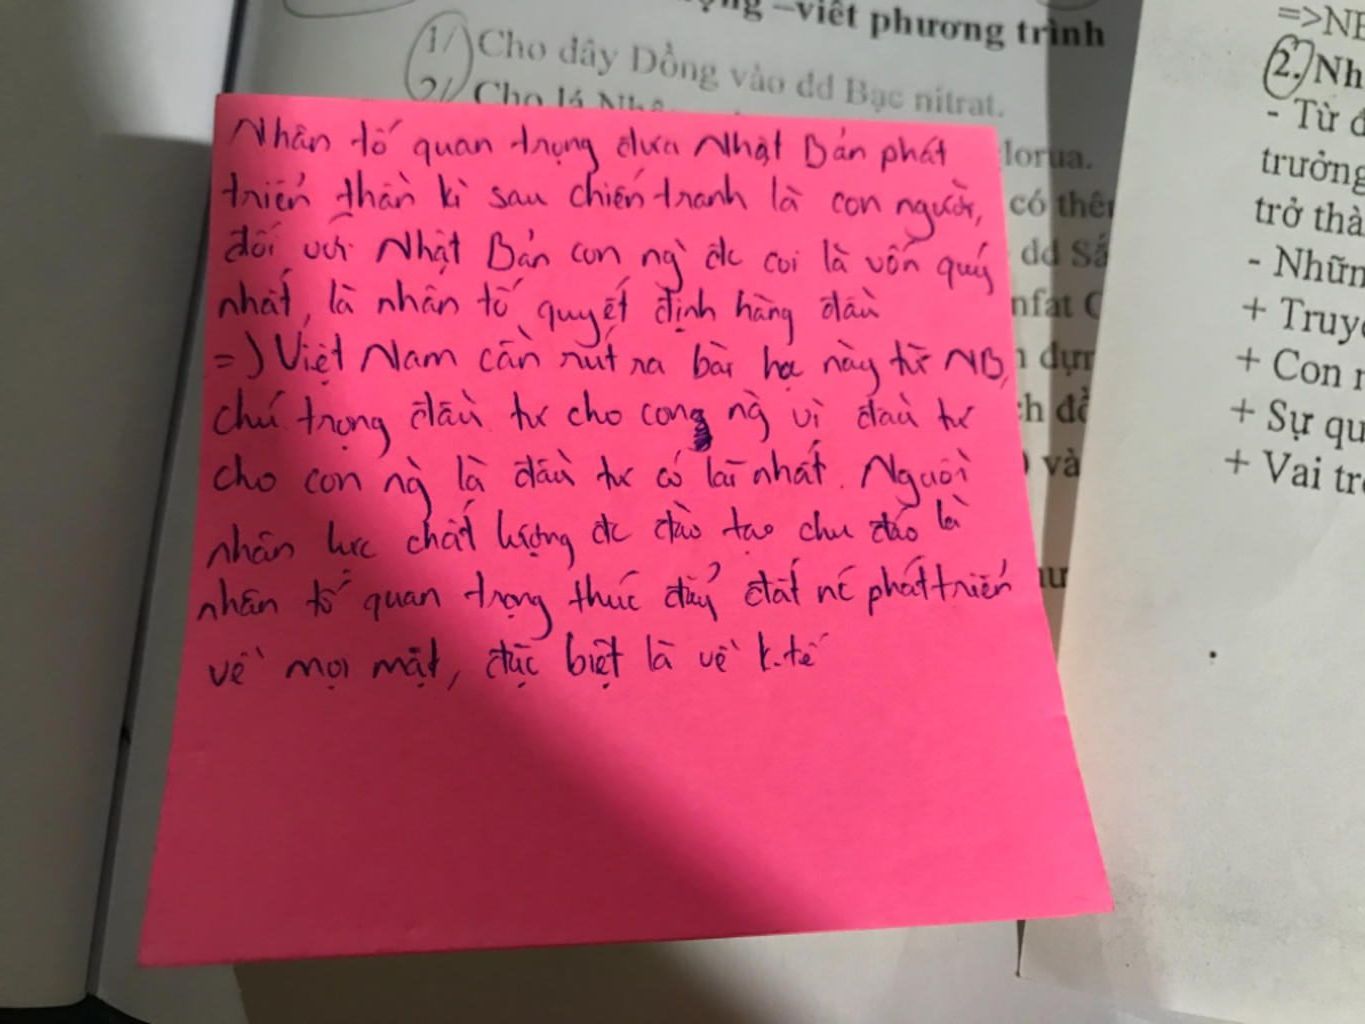 ợng –viết phương trình
1/ Cho dây Đồng vào dd Bạc nitrat.
2/ Cho lá
Nhân tố quan trọng đưa Nhật Bản phát
triển thần kì sau chiến tranh là con người,
đối với Nhật Bản con ng` đc coi là vốn quý
nhất, là nhân tố quyết định hàng đầu
=> Việt Nam cần rút ra bài học này từ NB,
chú trọng đầu tư cho con ng` vì đầu tư
cho con ng` là đầu tư có lãi nhất. Nguồn
nhân lực chất lượng đc đào tạo chu đáo là
nhân tố quan trọng thúc đẩy đất nc phát triển
về mọi mặt, đặc biệt là về k.tế
lorua.
có thê
dd Sắ
nfat
dựn
ch đồ
và
=>NB
2. Nh
- Từ đ
trưởng
trở thà
- Nhữn
+ Truyề
+ Con n
+ Sự qu
+ Vai trò